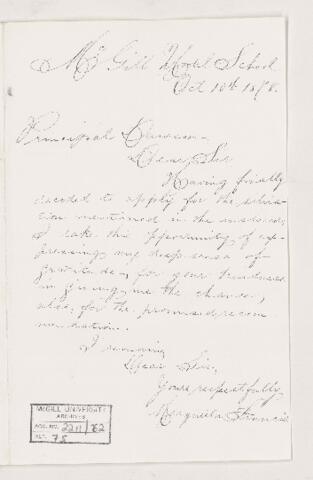 McGill Model School
Oct 10th 18
Principal
Dear Sir
Having finally
decided to apply for the situa-
tion mentioned in the enclosed,
I take this opportunity of ex-
pressing my deep sense of
gratitude, for your kindness
in giving me the chance,
also, for the promised recom-
mendation.
I remain,
Dear Sir,
Yours respectfully,
Francis
McGILL UNIVERSITY
ARCHIVES
ACC. NO. 2211/62
REF. 78